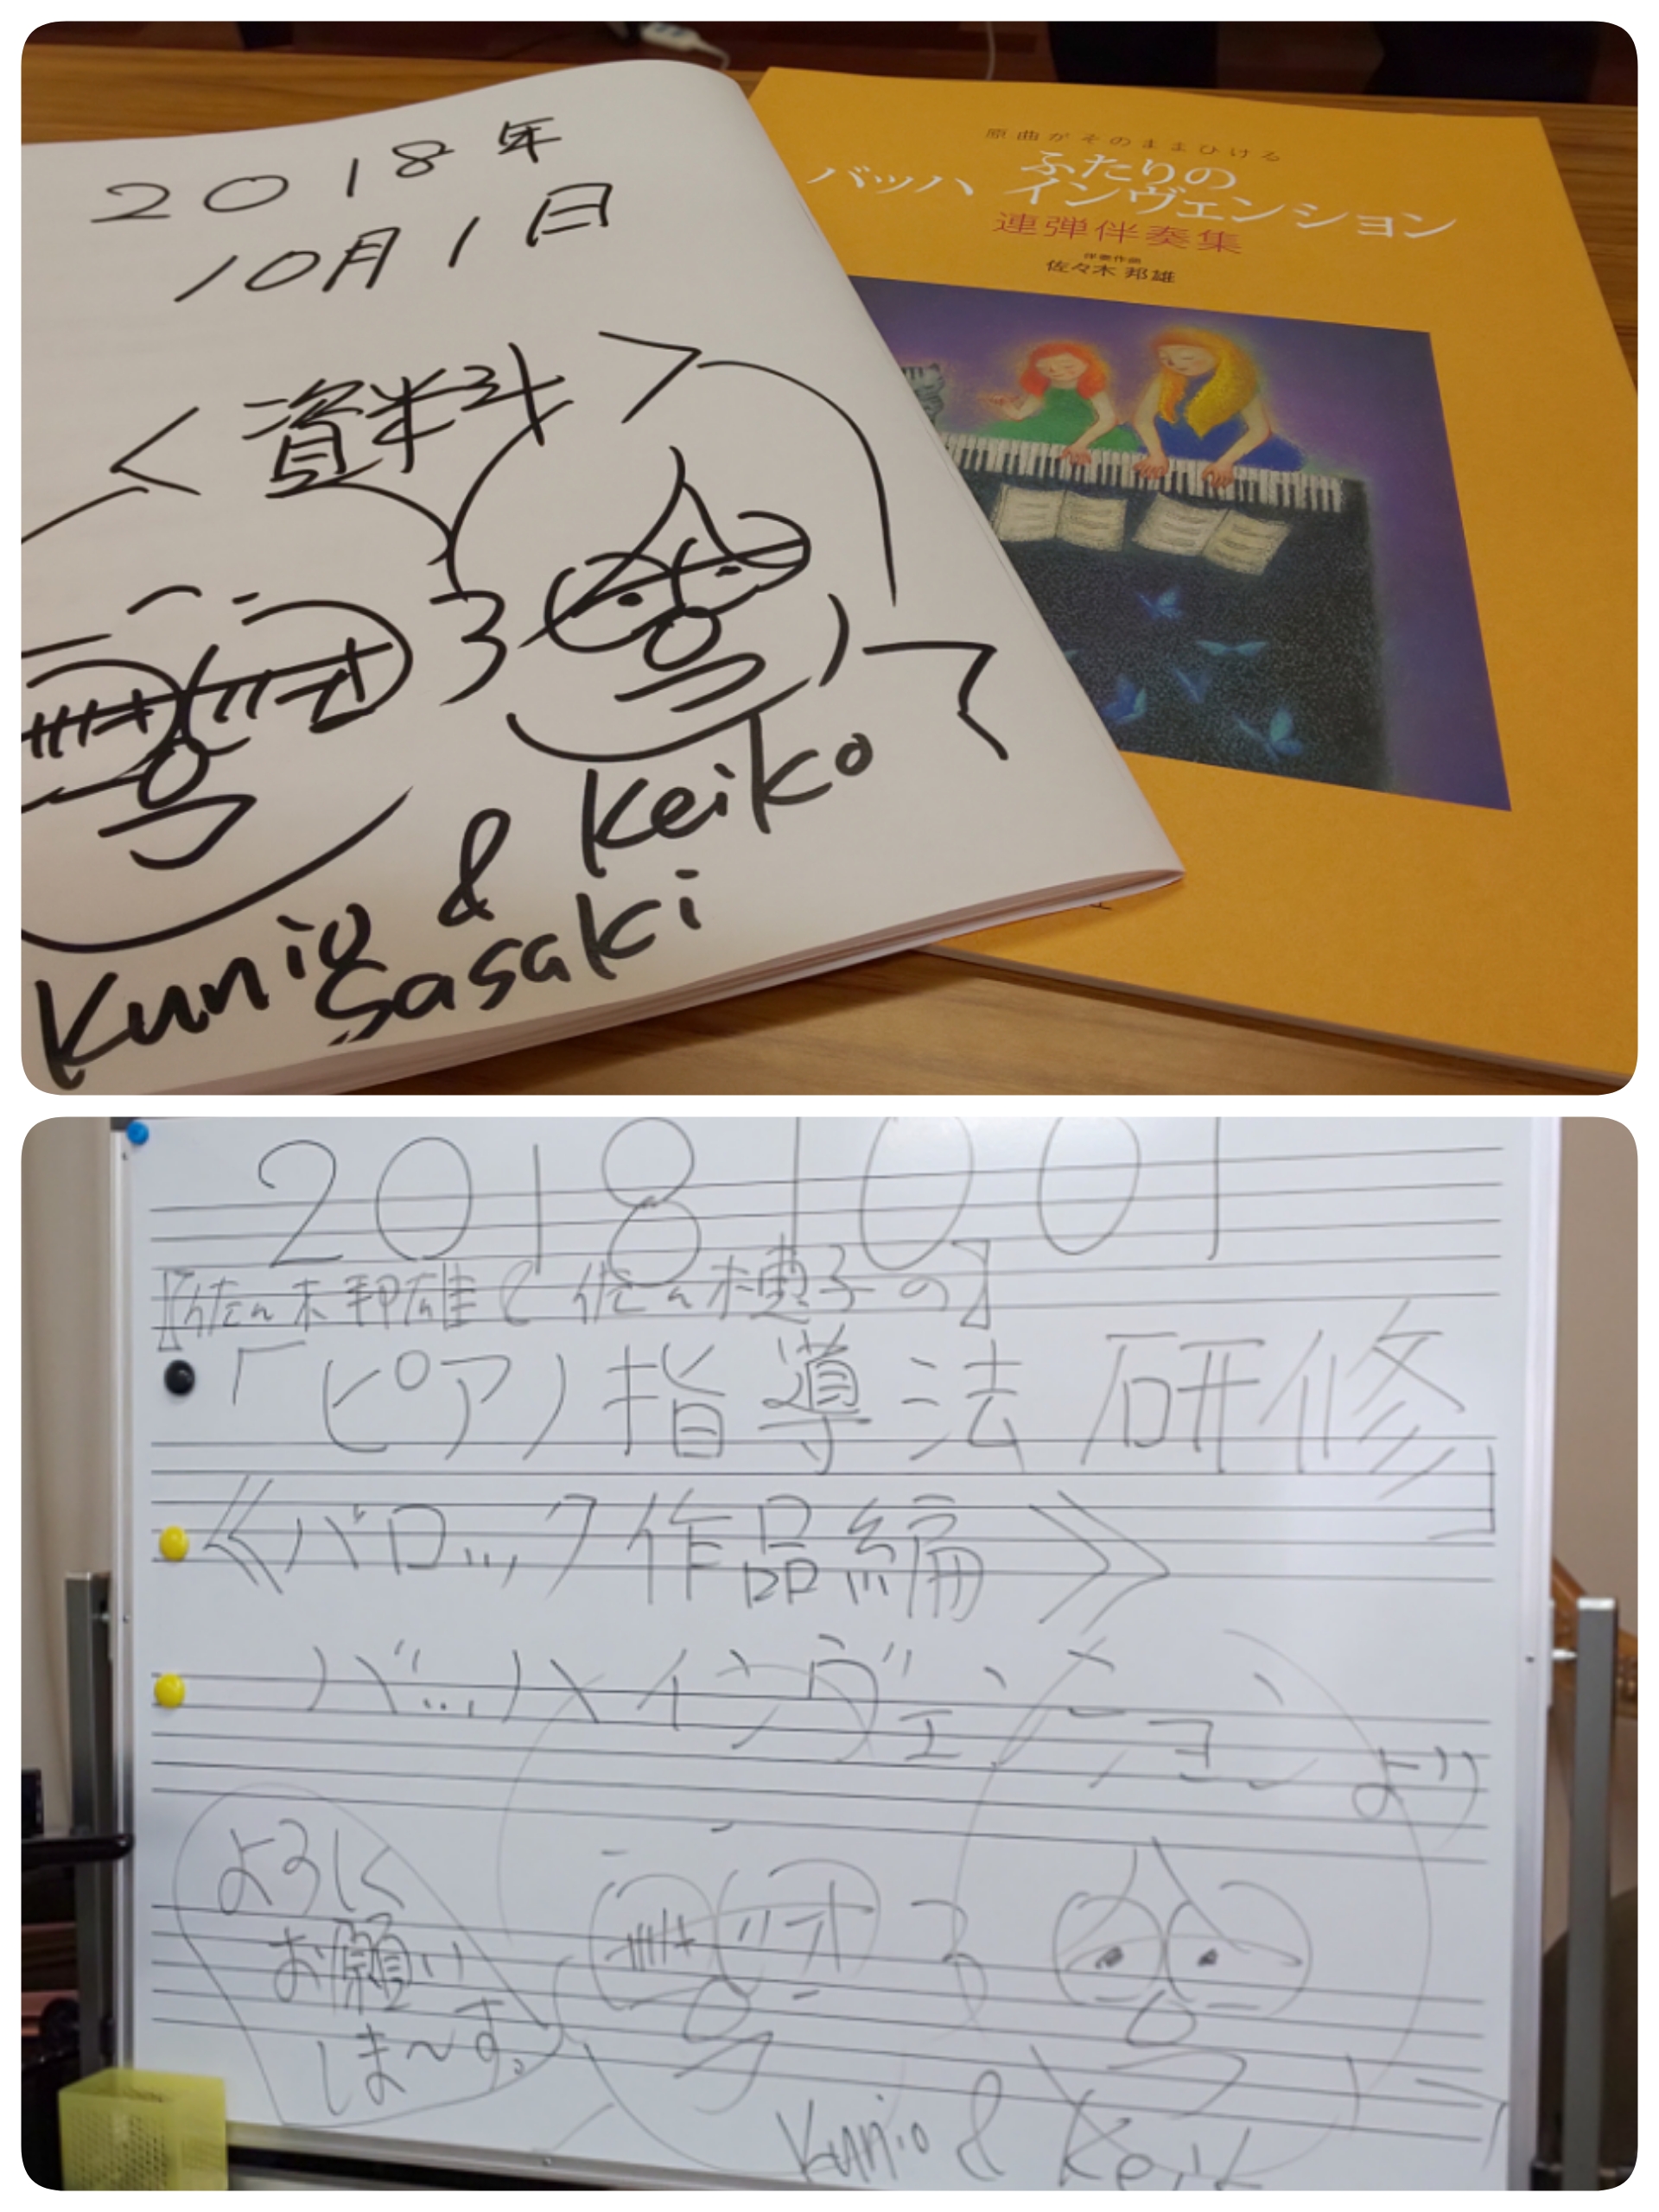 2018年
10月1日
<資料>
Kunio & Keiko
Sasaki
原曲がそのままひける
ふたりの
バッハ インヴェンション
連弾伴奏集
伴奏作曲
佐々木 邦雄
20181001
【佐々木邦雄と佐々木恵子の】
「ピアノ指導法研修」
《バロック作品編》
バッハインヴェンションより
よろしく
お願い
しま〜す。
Kunio & Keiko